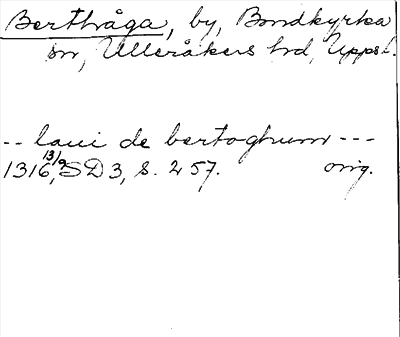 Berthåga, by, Bondkyrka
sn, Ulleråkers hd, Upps. l.
-- laui de bertoghum ---
1316 13/9, SD 3, s. 257. orig.